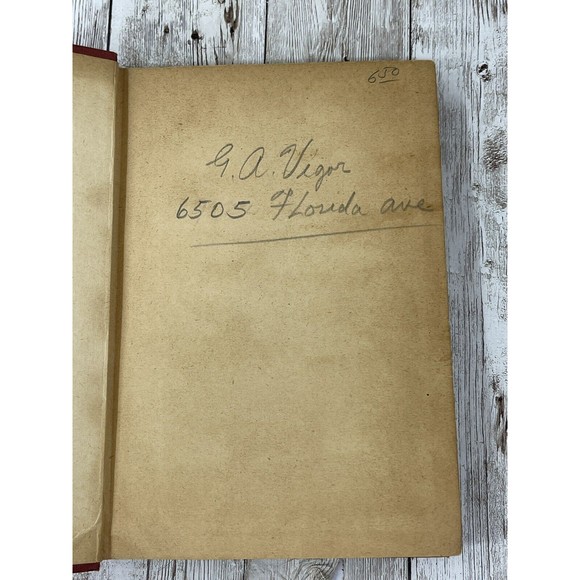 6 50
G. A. Vigor
6505 Florida ave